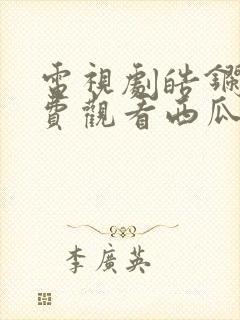 電視劇皓鑭
費觀看西瓜
李廣英